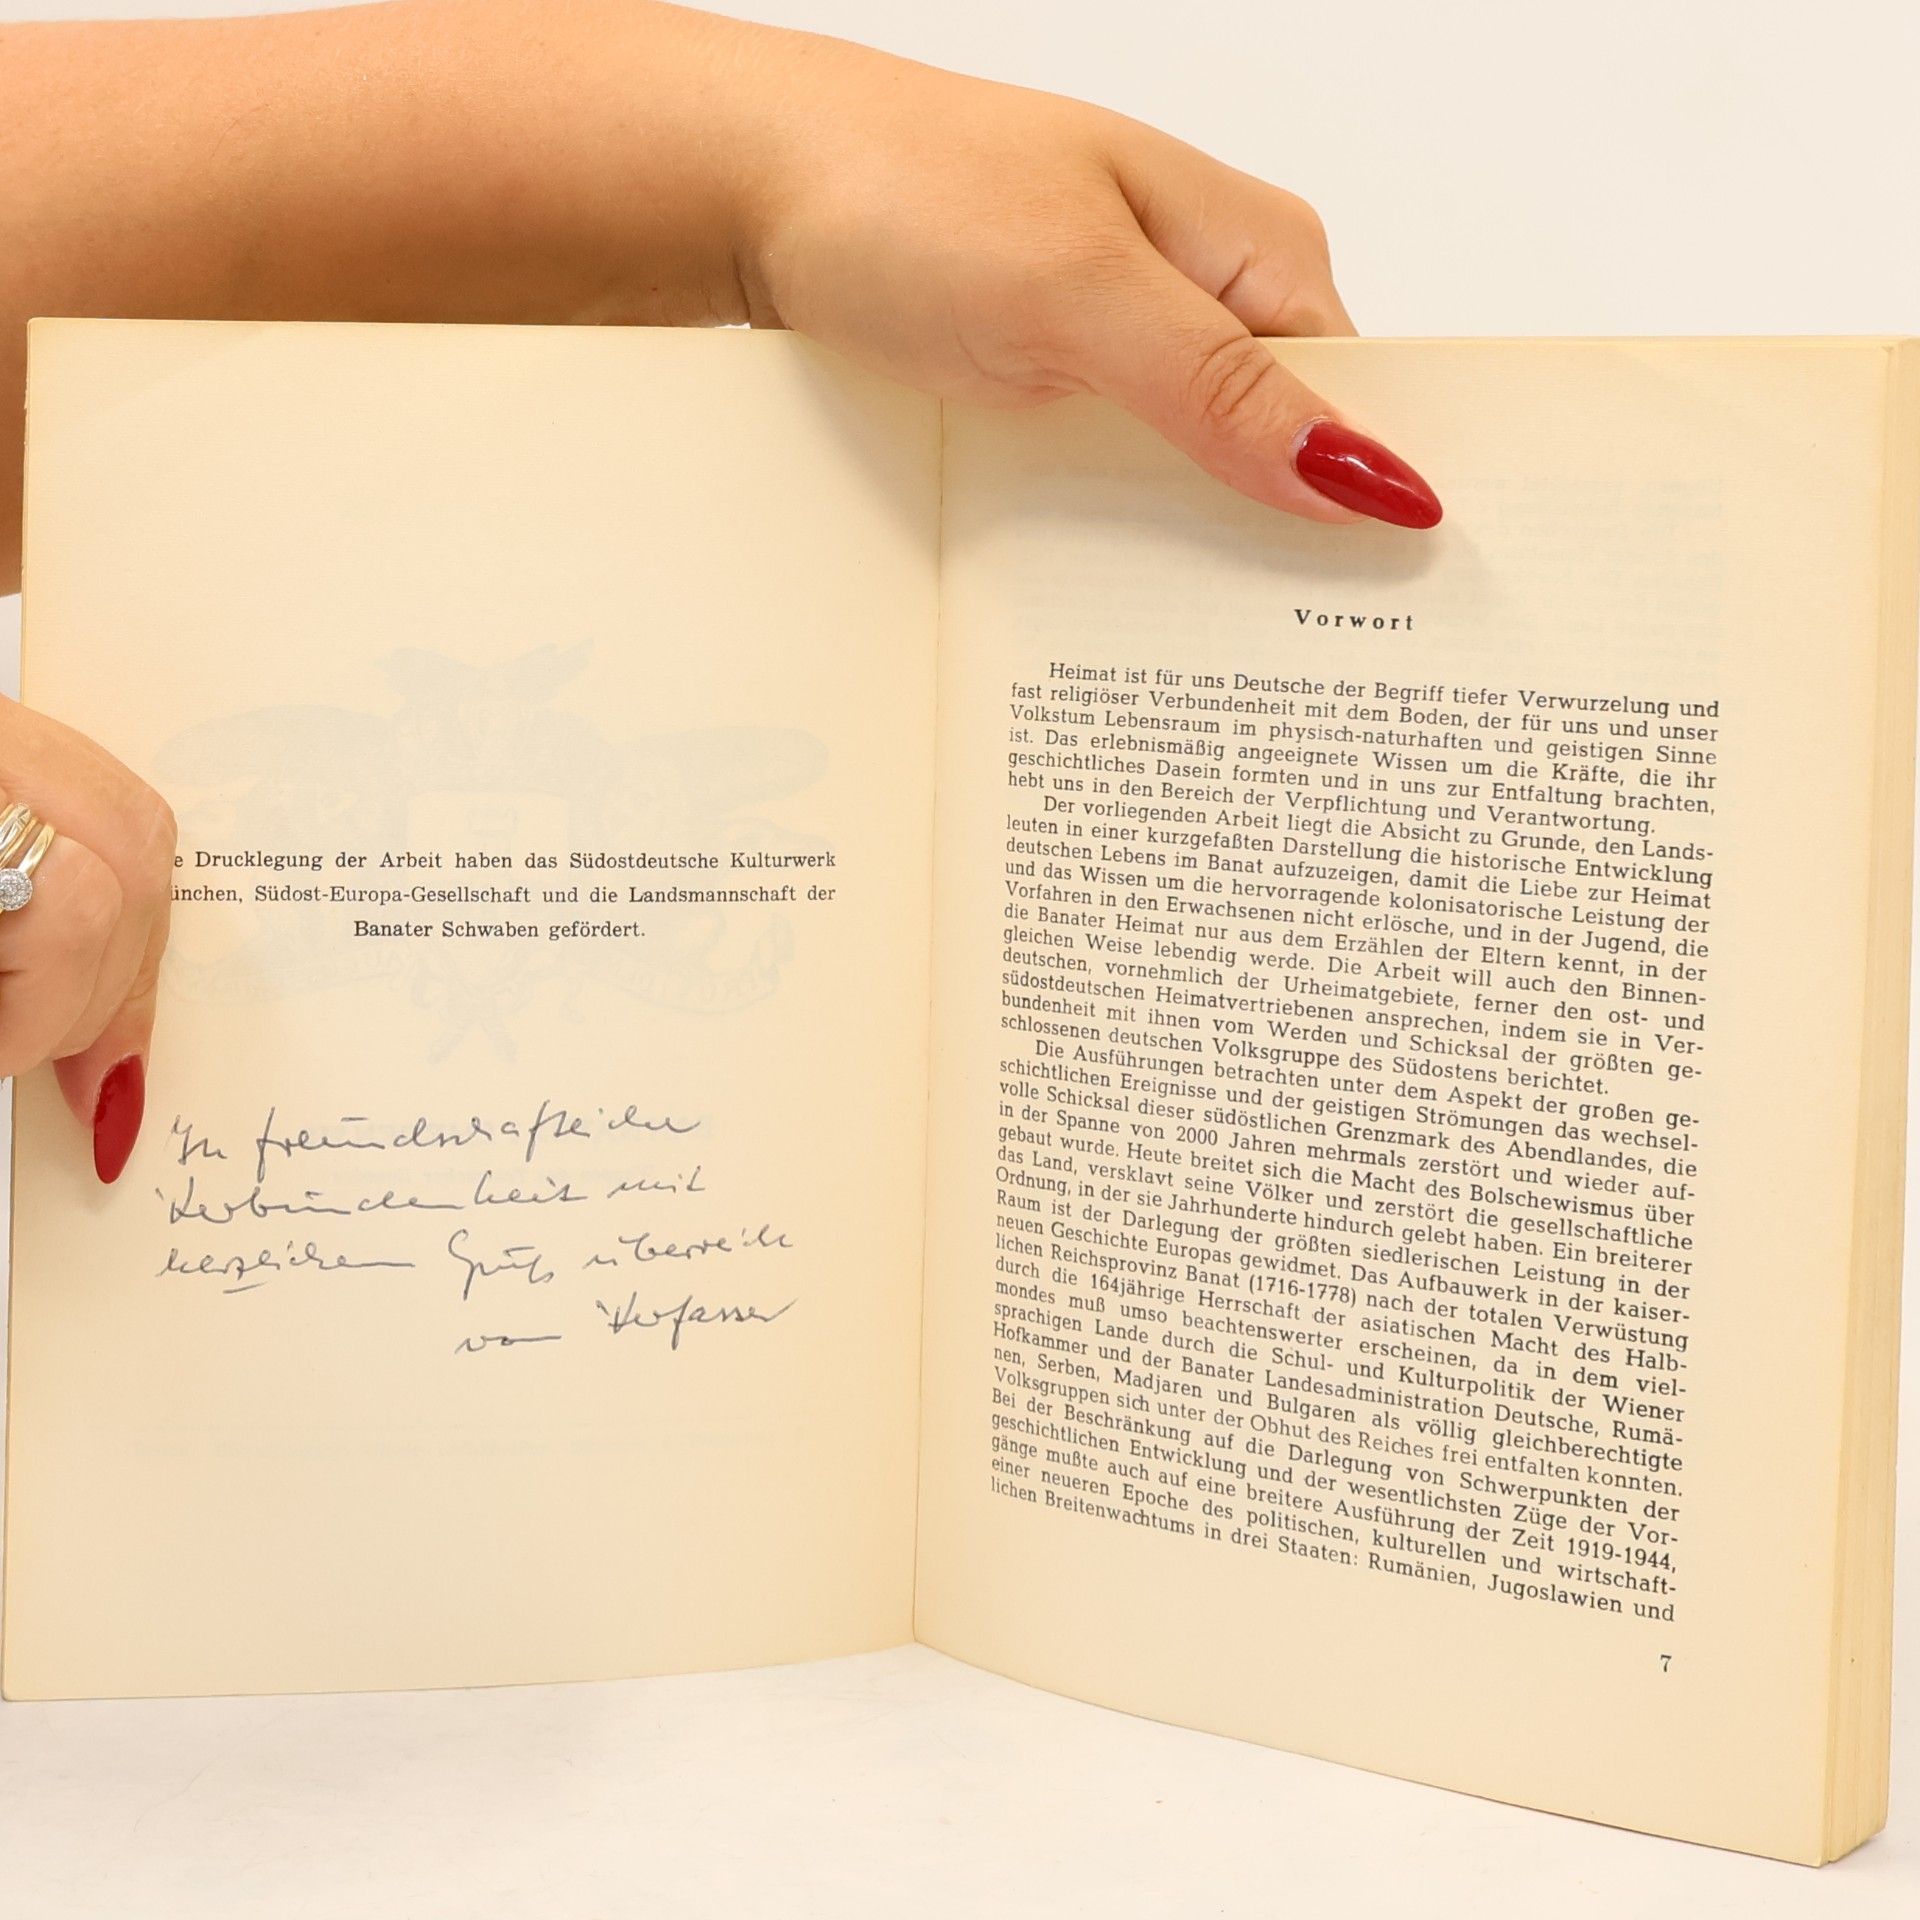 e Drucklegung der Arbeit haben das Südostdeutsche Kulturwerk
ünchen, Südost-Europa-Gesellschaft und die Landsmannschaft der
Banater Schwaben gefördert.
In freundschaftlicher
Verbundenheit mit
herzlichem Gruß überreicht
vom Verfasser
Vorwort
Heimat ist für uns Deutsche der Begriff tiefer Verwurzelung und
fast religiöser Verbundenheit mit dem Boden, der für uns und unser
Volkstum Lebensraum im physisch-naturhaften und geistigen Sinne
ist. Das erlebnismäßig angeeignete Wissen um die Kräfte, die ihr
geschichtliches Dasein formten und in uns zur Entfaltung brachten,
hebt uns in den Bereich der Verpflichtung und Verantwortung.
Der vorliegenden Arbeit liegt die Absicht zu Grunde, den Lands-
leuten in einer kurzgefaßten Darstellung die historische Entwicklung
deutschen Lebens im Banat aufzuzeigen, damit die Liebe zur Heimat
und das Wissen um die hervorragende kolonisatorische Leistung der
Vorfahren in den Erwachsenen nicht erlösche, und in der Jugend, die
die Banater Heimat nur aus dem Erzählen der Eltern kennt, in der
gleichen Weise lebendig werde. Die Arbeit will auch den Binnen-
deutschen, vornehmlich der Urheimatgebiete, ferner den ost- und
südostdeutschen Heimatvertriebenen ansprechen, indem sie in Ver-
bundenheit mit ihnen vom Werden und Schicksal der größten ge-
schlossenen deutschen Volksgruppe des Südostens berichtet.
Die Ausführungen betrachten unter dem Aspekt der großen ge-
schichtlichen Ereignisse und der geistigen Strömungen das wechsel-
volle Schicksal dieser südöstlichen Grenzmark des Abendlandes, die
in der Spanne von 2000 Jahren mehrmals zerstört und wieder auf-
gebaut wurde. Heute breitet sich die Macht des Bolschewismus über
das Land, versklavt seine Völker und zerstört die gesellschaftliche
Ordnung, in der sie Jahrhunderte hindurch gelebt haben. Ein breiterer
Raum ist der Darlegung der größten siedlerischen Leistung in der
neuen Geschichte Europas gewidmet. Das Aufbauwerk in der kaiser-
lichen Reichsprovinz Banat (1716-1778) nach der totalen Verwüstung
durch die 164jährige Herrschaft der asiatischen Macht des Halb-
mondes muß umso beachtenswerter erscheinen, da in dem viel-
sprachigen Lande durch die Schul- und Kulturpolitik der Wiener
Hofkammer und der Banater Landesadministration Deutsche, Rumä-
nen, Serben, Madjaren und Bulgaren als völlig gleichberechtigte
Volksgruppen sich unter der Obhut des Reiches frei entfalten konnten.
Bei der Beschränkung auf die Darlegung von Schwerpunkten der
geschichtlichen Entwicklung und der wesentlichsten Züge der Vor-
gänge mußte auch auf eine breitere Ausführung der Zeit 1919-1944,
einer neueren Epoche des politischen, kulturellen und wirtschaft-
lichen Breitenwachtums in drei Staaten: Rumänien, Jugoslawien und
7